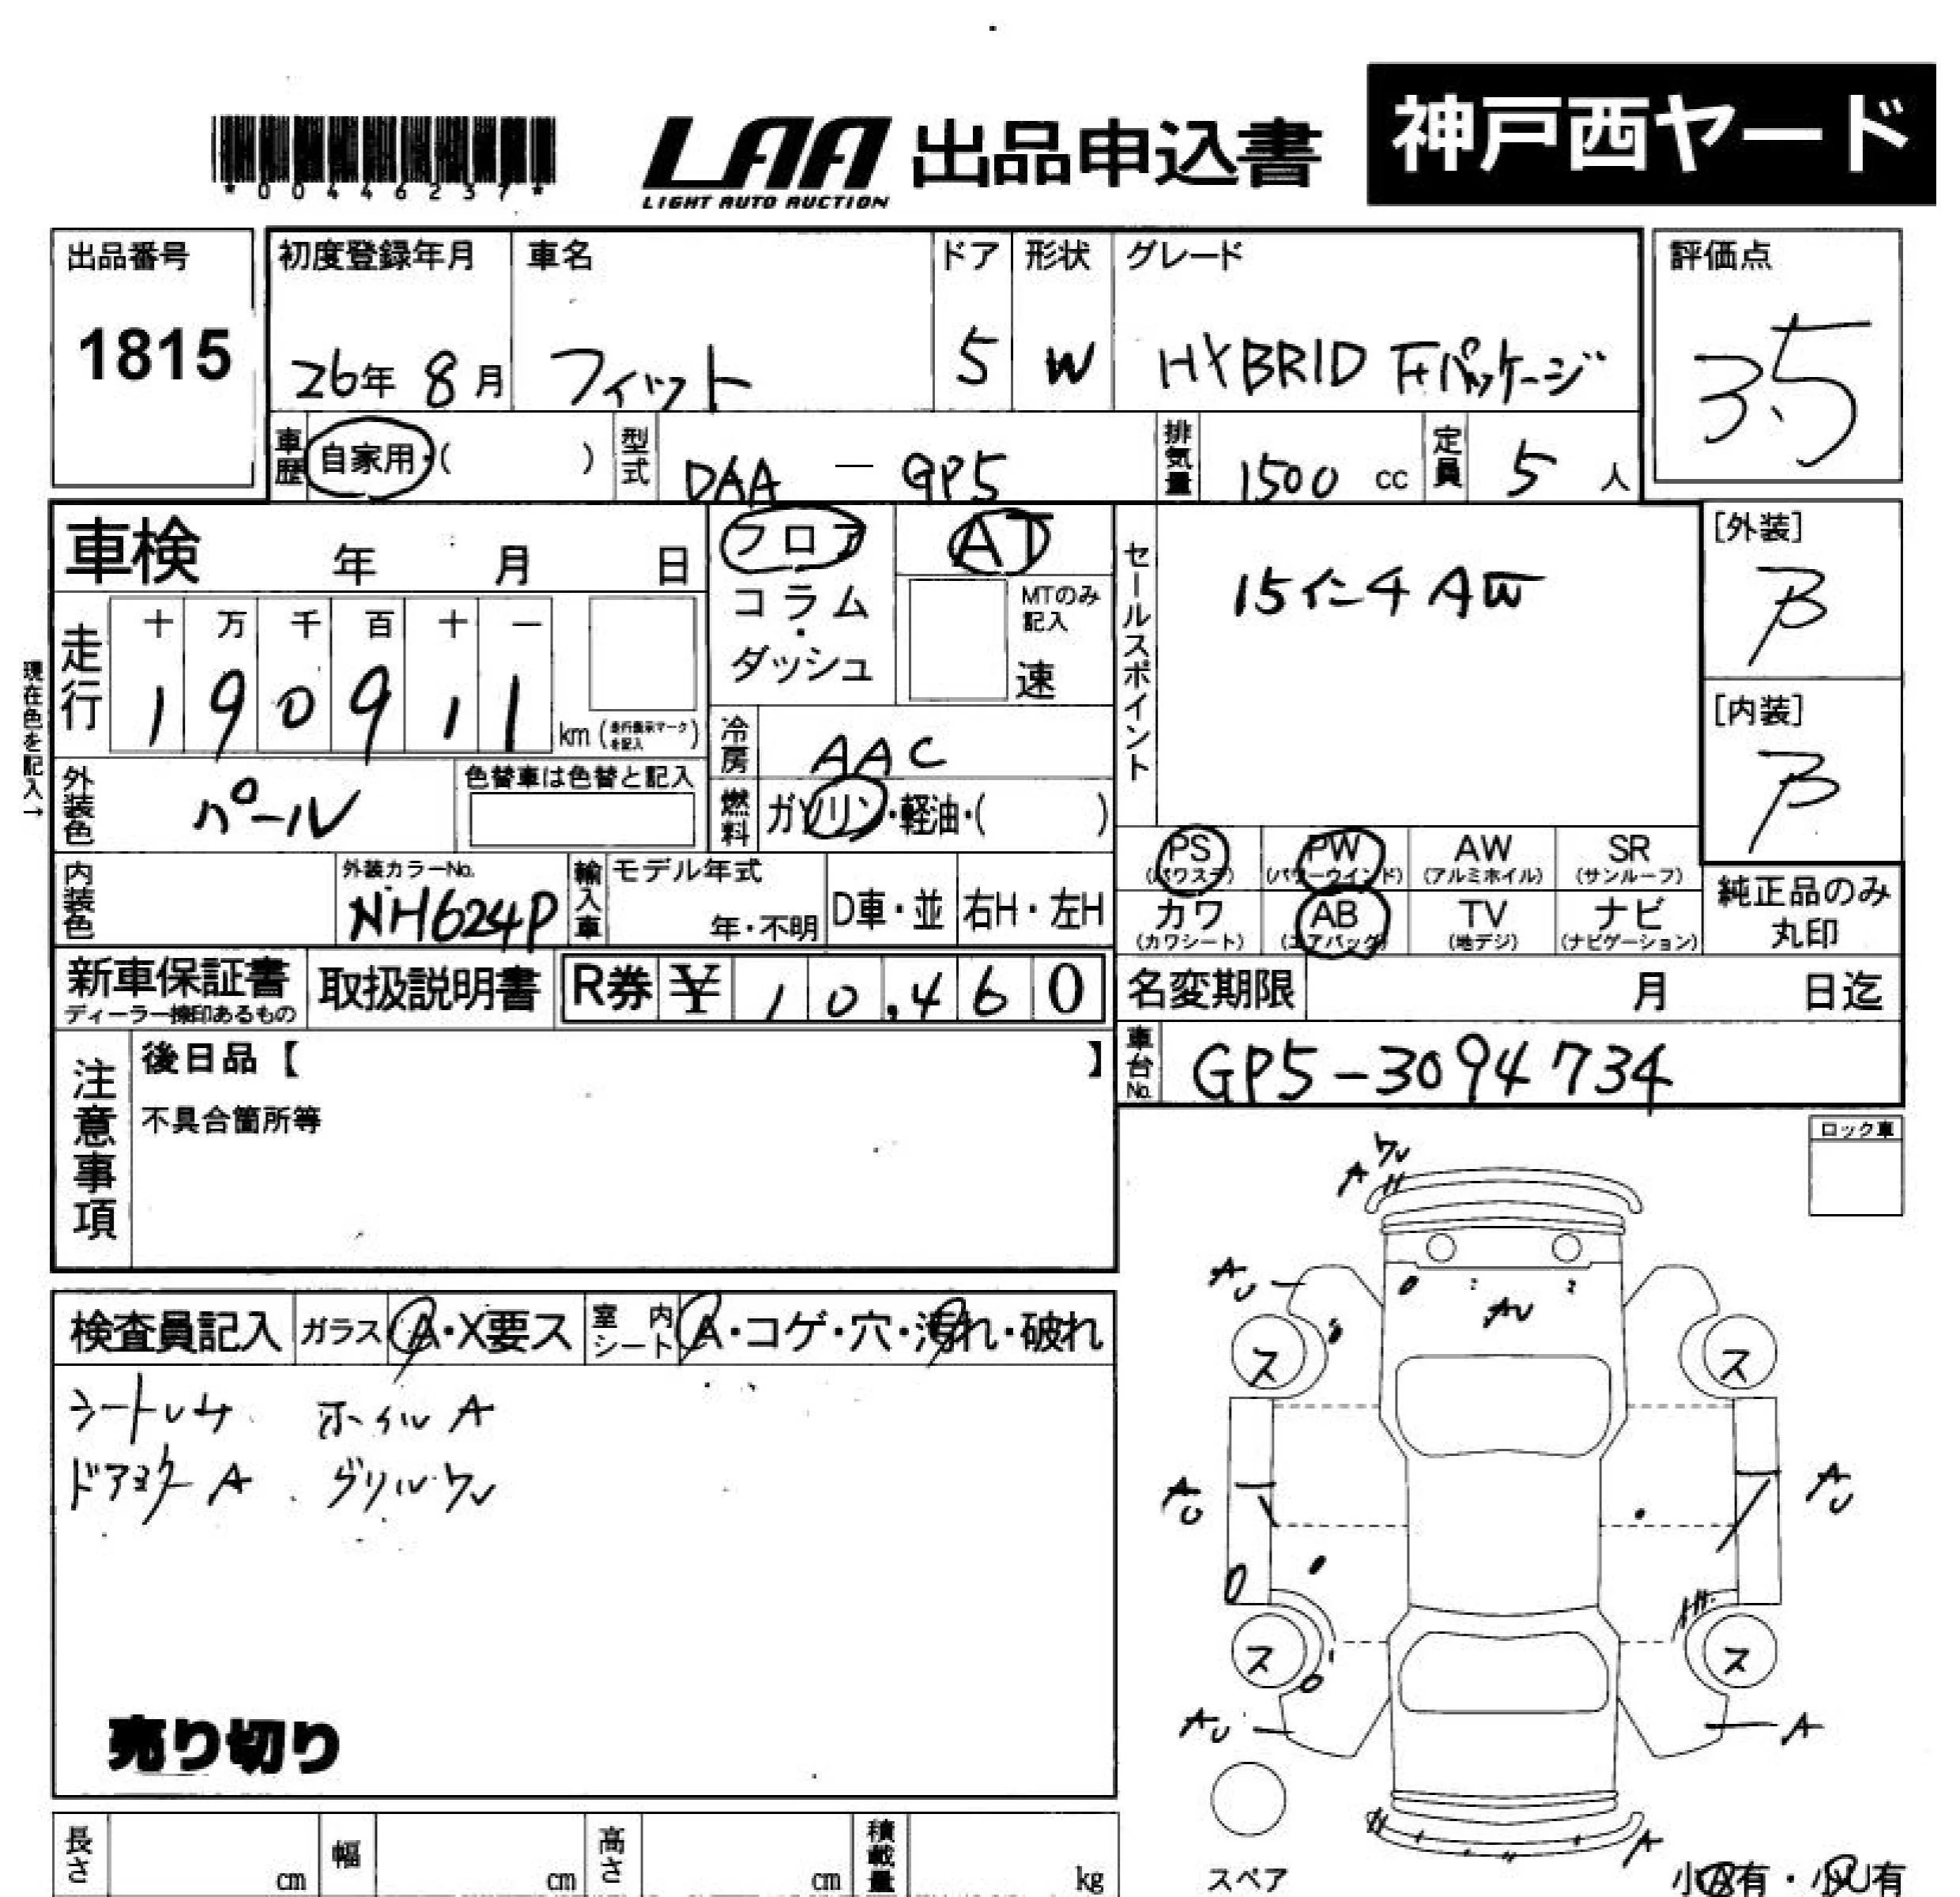 神戸西ヤード
*00446237*
LAA 出品申込書
LIGHT AUTO AUCTION
出品番号 初度登録年月 車名 ドア 形状 グレード 評価点
1815 26年 8月 フィット 5 W HYBRID Fパッケージ 3.5
車歴 自家用・( ) 型式 DAA - GP5 排気量 1500 cc 定員 5 人
車検 年 月 日 フロア AT セールスポイント [外装]
コラム・ダッシュ MTのみ記入 速 15インチ AW B
現在色を記入→
走行 十 万 千 百 十 一
1 9 0 9 1 1 km (走行表示マークを記入) [内装]
冷房 AAC B
外装色 パール 色替車は色替と記入 燃料 ガソリン・軽油・( )
PS (パワステ) PW (パワーウインド) AW (アルミホイル) SR (サンルーフ)
内装色 外装カラーNo. NH624P 輸入車 モデル年式 年・不明 D車・並 右H・左H
カワ (カワシート) AB (エアバッグ) TV (地デジ) ナビ (ナビゲーション) 純正品のみ丸印
新車保証書 ディーラー捺印あるもの 取扱説明書 R券 ¥ 10,460 名変期限 月 日迄
注意事項 後日品【 】 車台No. GP5-3094734
不具合箇所等
ロック車
ワレ
A
AU AU
検査員記入 ガラス A・X要ス 室内シート A・コゲ・穴・汚れ・破れ
ス ス
シートレサ ホイルA
ドアミラーA グリルワレ
AU AU
ス ス
売り切り
AU A
A
長さ cm 幅 cm 高さ cm 積載量 kg スペア 小A有・小U有